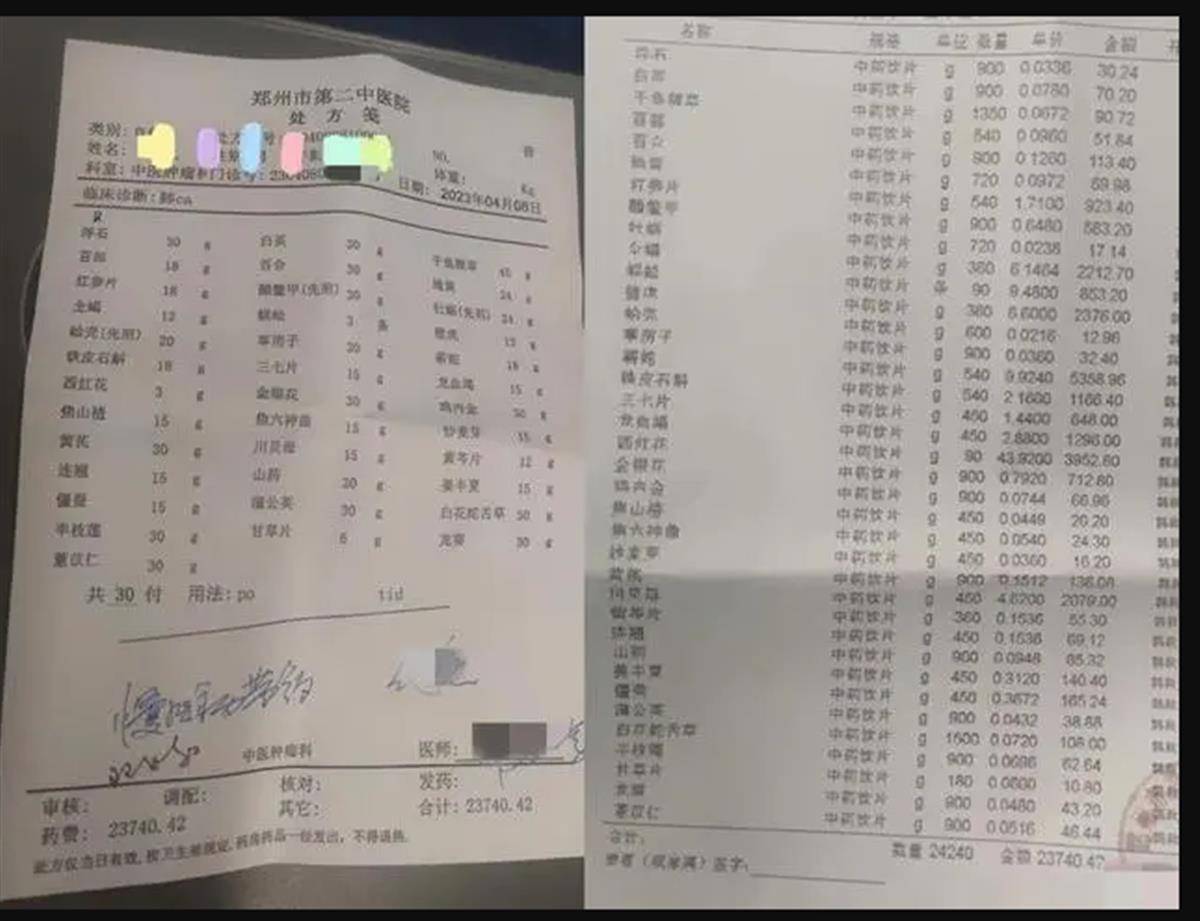 郑州市第二中医院
处方笺
类别:
姓名:
NO. 普
科室: 中医肿瘤科门诊号:
体重: Kg
日期: 2023年04月08日
临床诊断:肺ca
R
浮石 30 g 白英 30 g 干鱼腥草 45 g
百部 18 g 百合 30 g
红参片 18 g 醋鳖甲(先煎) 30 g 牡蛎(先煎) 24 g
全蝎 12 g 蜈蚣 3 条
蛤壳(先煎) 20 g 葶苈子 30 g 蕲蛇 18 g
铁皮石斛 18 g 三七片 15 g 龙血竭 15 g
西红花 3 g 金银花 30 g 鸡内金 30 g
焦山楂 15 g 焦六神曲 15 g 炒麦芽 15 g
黄芪 30 g 川贝母 15 g 黄芩片 12 g
连翘 15 g 山药 30 g 姜半夏 15 g
僵蚕 15 g 蒲公英 30 g 白花蛇舌草 50 g
半枝莲 30 g 甘草片 6 g 龙葵 30 g
薏苡仁 30 g
共 30 付 用法:po tid
中医肿瘤科 医师:
审核: 调配: 核对: 发药:
药费: 23740.42 其它: 合计: 23740.42
此方仅当日有效,按卫生部规定,药房药品一经发出,不得退换。
名称 规格 单位 数量 单价 金额
浮石 中药饮片 g 900 0.0336 30.24
白英 中药饮片 g 900 0.0780 70.20
干鱼腥草 中药饮片 g 1350 0.0672 90.72
百部 中药饮片 g 540 0.0960 51.84
百合 中药饮片 g 900 0.1260 113.40
中药饮片 g 720 0.0972 69.98
红参片 中药饮片 g 540 1.7100 923.40
醋鳖甲 中药饮片 g 900 0.6480 583.20
牡蛎 中药饮片 g 720 0.0238 17.14
全蝎 中药饮片 g 360 6.1464 2212.70
蜈蚣 中药饮片 条 90 9.4800 853.20
中药饮片 g 360 6.6000 2376.00
蛤壳 中药饮片 g 600 0.0216 12.96
葶苈子 中药饮片 g 900 0.0360 32.40
蕲蛇 中药饮片 g 540 9.9240 5358.96
铁皮石斛 中药饮片 g 540 2.1600 1166.40
三七片 中药饮片 g 450 1.4400 648.00
龙血竭 中药饮片 g 450 2.8800 1296.00
西红花 中药饮片 g 90 43.9200 3952.80
金银花 中药饮片 g 900 0.7920 712.80
鸡内金 中药饮片 g 900 0.0744 66.96
焦山楂 中药饮片 g 450 0.0449 20.20
焦六神曲 中药饮片 g 450 0.0540 24.30
炒麦芽 中药饮片 g 450 0.0360 16.20
黄芪 中药饮片 g 900 0.1512 136.08
川贝母 中药饮片 g 450 4.6200 2079.00
黄芩片 中药饮片 g 360 0.1536 55.30
连翘 中药饮片 g 450 0.1536 69.12
山药 中药饮片 g 900 0.0948 85.32
姜半夏 中药饮片 g 450 0.3120 140.40
僵蚕 中药饮片 g 450 0.3672 165.24
蒲公英 中药饮片 g 900 0.0432 38.88
白花蛇舌草 中药饮片 g 1500 0.0720 108.00
半枝莲 中药饮片 g 900 0.0696 62.64
甘草片 中药饮片 g 180 0.0600 10.80
龙葵 中药饮片 g 900 0.0480 43.20
薏苡仁 中药饮片 g 900 0.0516 46.44
合计: 数量 24240 金额 23740.42
患者(或家属)签字: